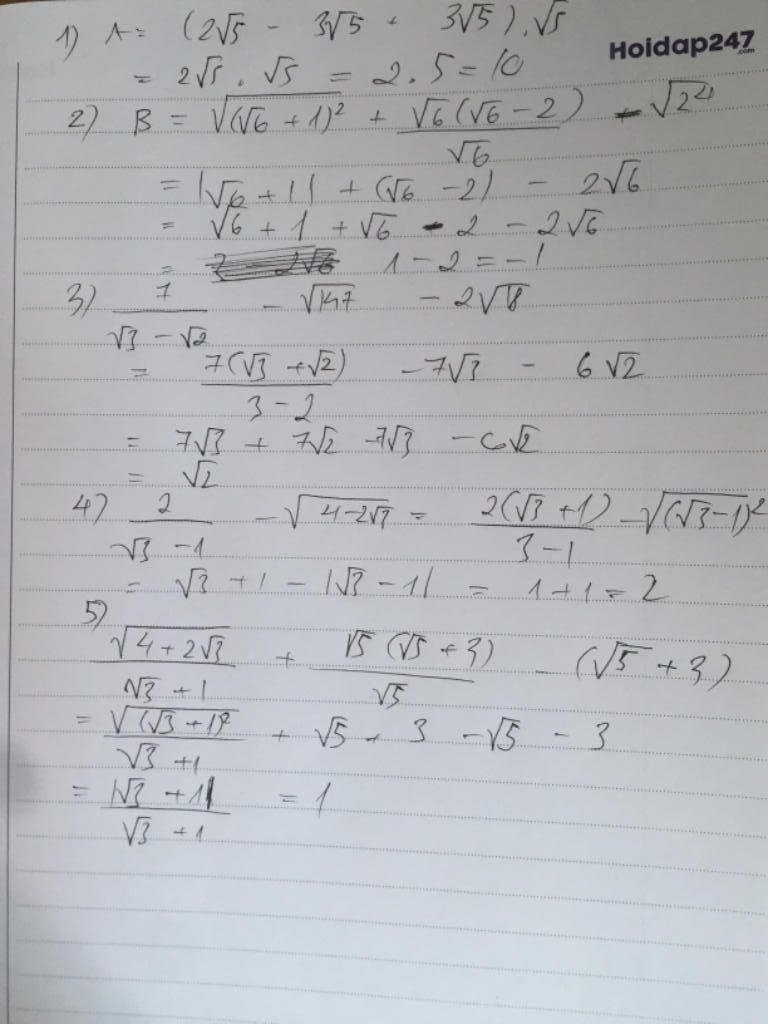 Hoidap247
.com
1) A = (2√5 - 3√5 + 3√5).√5
= 2√5 . √5 = 2.5 = 10
2) B = √((√6 + 1)²) + (√6(√6 - 2))/√6 - √24
= |√6 + 1| + (√6 - 2) - 2√6
= √6 + 1 + √6 - 2 - 2√6
= 1 - 2 = -1
3) 7/(√3 - √2) - √147 - 2√18
= (7(√3 + √2))/(3 - 2) - 7√3 - 6√2
= 7√3 + 7√2 - 7√3 - 6√2
= √2
4) 2/(√3 - 1) - √(4 - 2√3) = (2(√3 + 1))/(3 - 1) - √((√3 - 1)²)
= √3 + 1 - |√3 - 1| = 1 + 1 = 2
5)
√(4 + 2√3)/(√3 + 1) + (√5(√5 + 3))/√5 - (√5 + 3)
= √((√3 + 1)²)/(√3 + 1) + √5 + 3 - √5 - 3
= |√3 + 1|/(√3 + 1) = 1